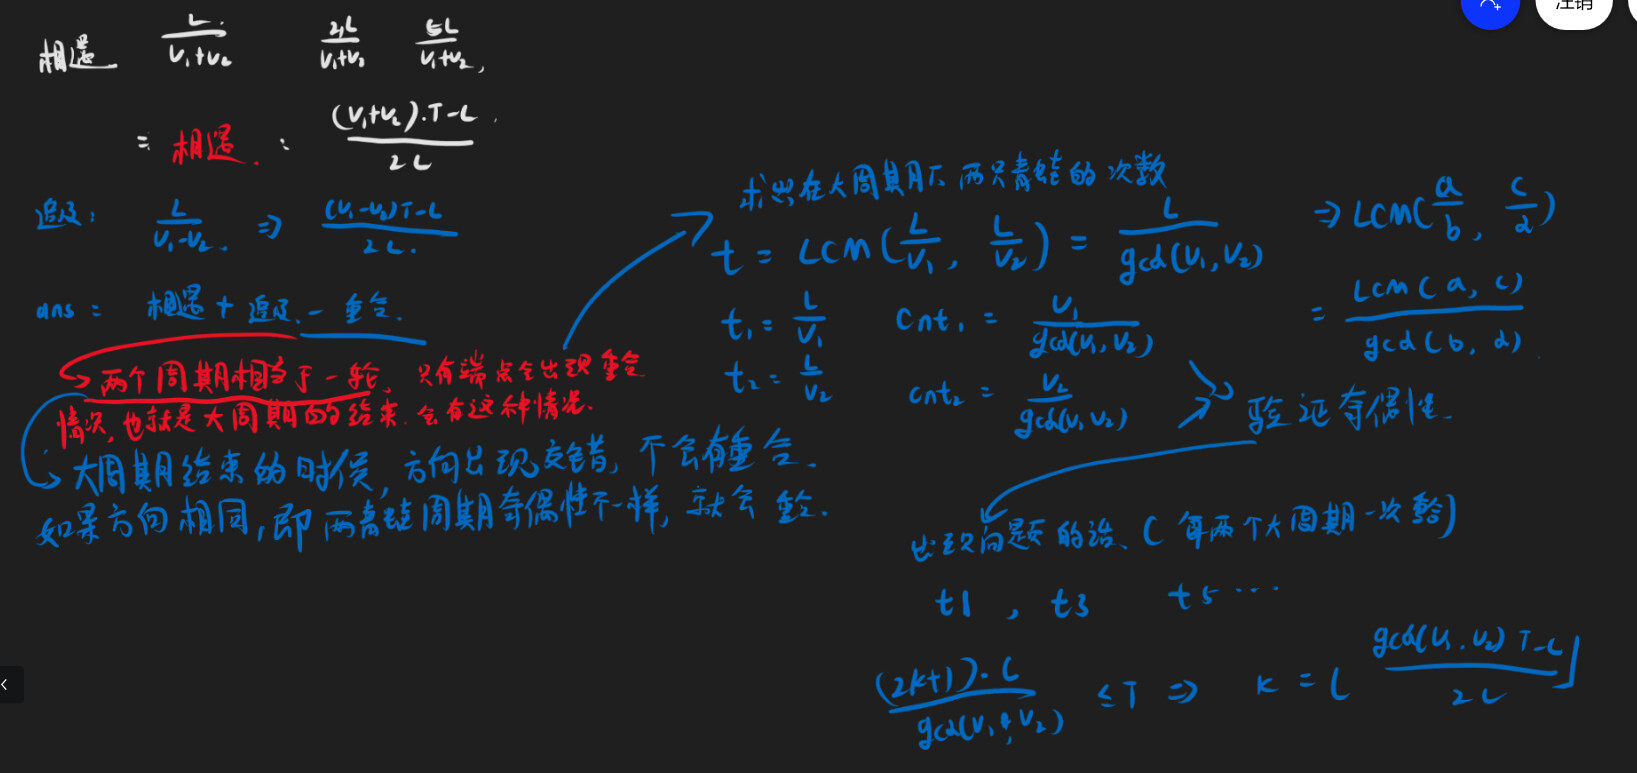 注销
相遇 L/(V₁+V₂) 3L/(V₁+V₂) 5L/(V₁+V₂),
= 相遇: ((V₁+V₂)·T-L)/(2L)
追及: L/(V₁-V₂) ⇒ ((V₁-V₂)T-L)/(2L)
ans = 相遇 + 追及 - 重合.
两个周期相当于一轮, 只有端点会出现重合
情况, 也就是大周期的结束. 会有这种情况.
大周期结束的时候, 方向出现交错, 不会有重合.
如果方向相同, 即两青蛙周期奇偶性不一样, 就会重合.
求出在大周期下 两只青蛙的次数
t = LCM(L/V₁, L/V₂) = L/gcd(V₁,V₂)
⇒ LCM(a/b, c/d)
= Lcm(a, c)/gcd(b, d)
t₁ = L/V₁ Cnt₁ = V₁/gcd(V₁,V₂)
t₂ = L/V₂ cnt₂ = V₂/gcd(V₁,V₂)
验证奇偶性
出现问题的话、(每两个大周期一次重合)
t1, t3 t5 ...
(2k+1)·L/gcd(V₁,V₂) ≤ T ⇒ K = ⌊(gcd(V₁,V₂)T-L)/(2L)⌋